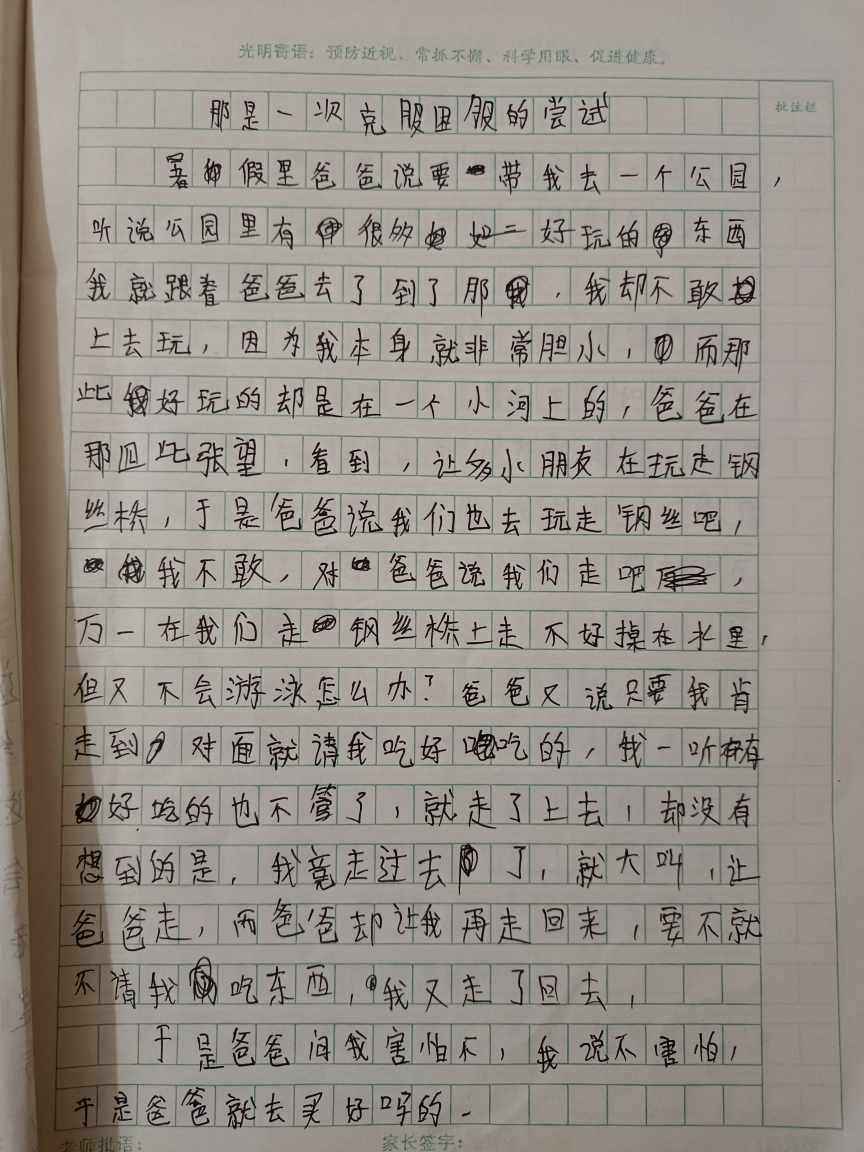 光明寄语：预防近视、常抓不懈、科学用眼、促进健康。
批注栏
那是一次克服困难的尝试
暑假里爸爸说要带我去一个公园，
听说公园里有很多好玩的东西
我就跟着爸爸去了到了那，我却不敢
上去玩，因为我本身就非常胆小，而那
些好玩的却是在一个小河上的，爸爸在
那四此张望，看到，让多小朋友在玩走钢
丝桥，于是爸爸说我们也去玩走钢丝吧，
我不敢，对爸爸说我们走吧，
万一在我们走钢丝桥上走不好掉在水里，
但又不会游泳怎么办？爸爸又说只要我肯
走到对面就请我吃好吃的，我一听有
好吃的也不管了，就走了上去，却没有
想到的是，我竟走过去了，就大叫，让
爸爸走，而爸爸却让我再走回来，要不就
不请我吃东西，我又走了回去，
于是爸爸问我害怕不，我说不害怕，
于是爸爸就去买好吃的.
老师批语：
家长签字：